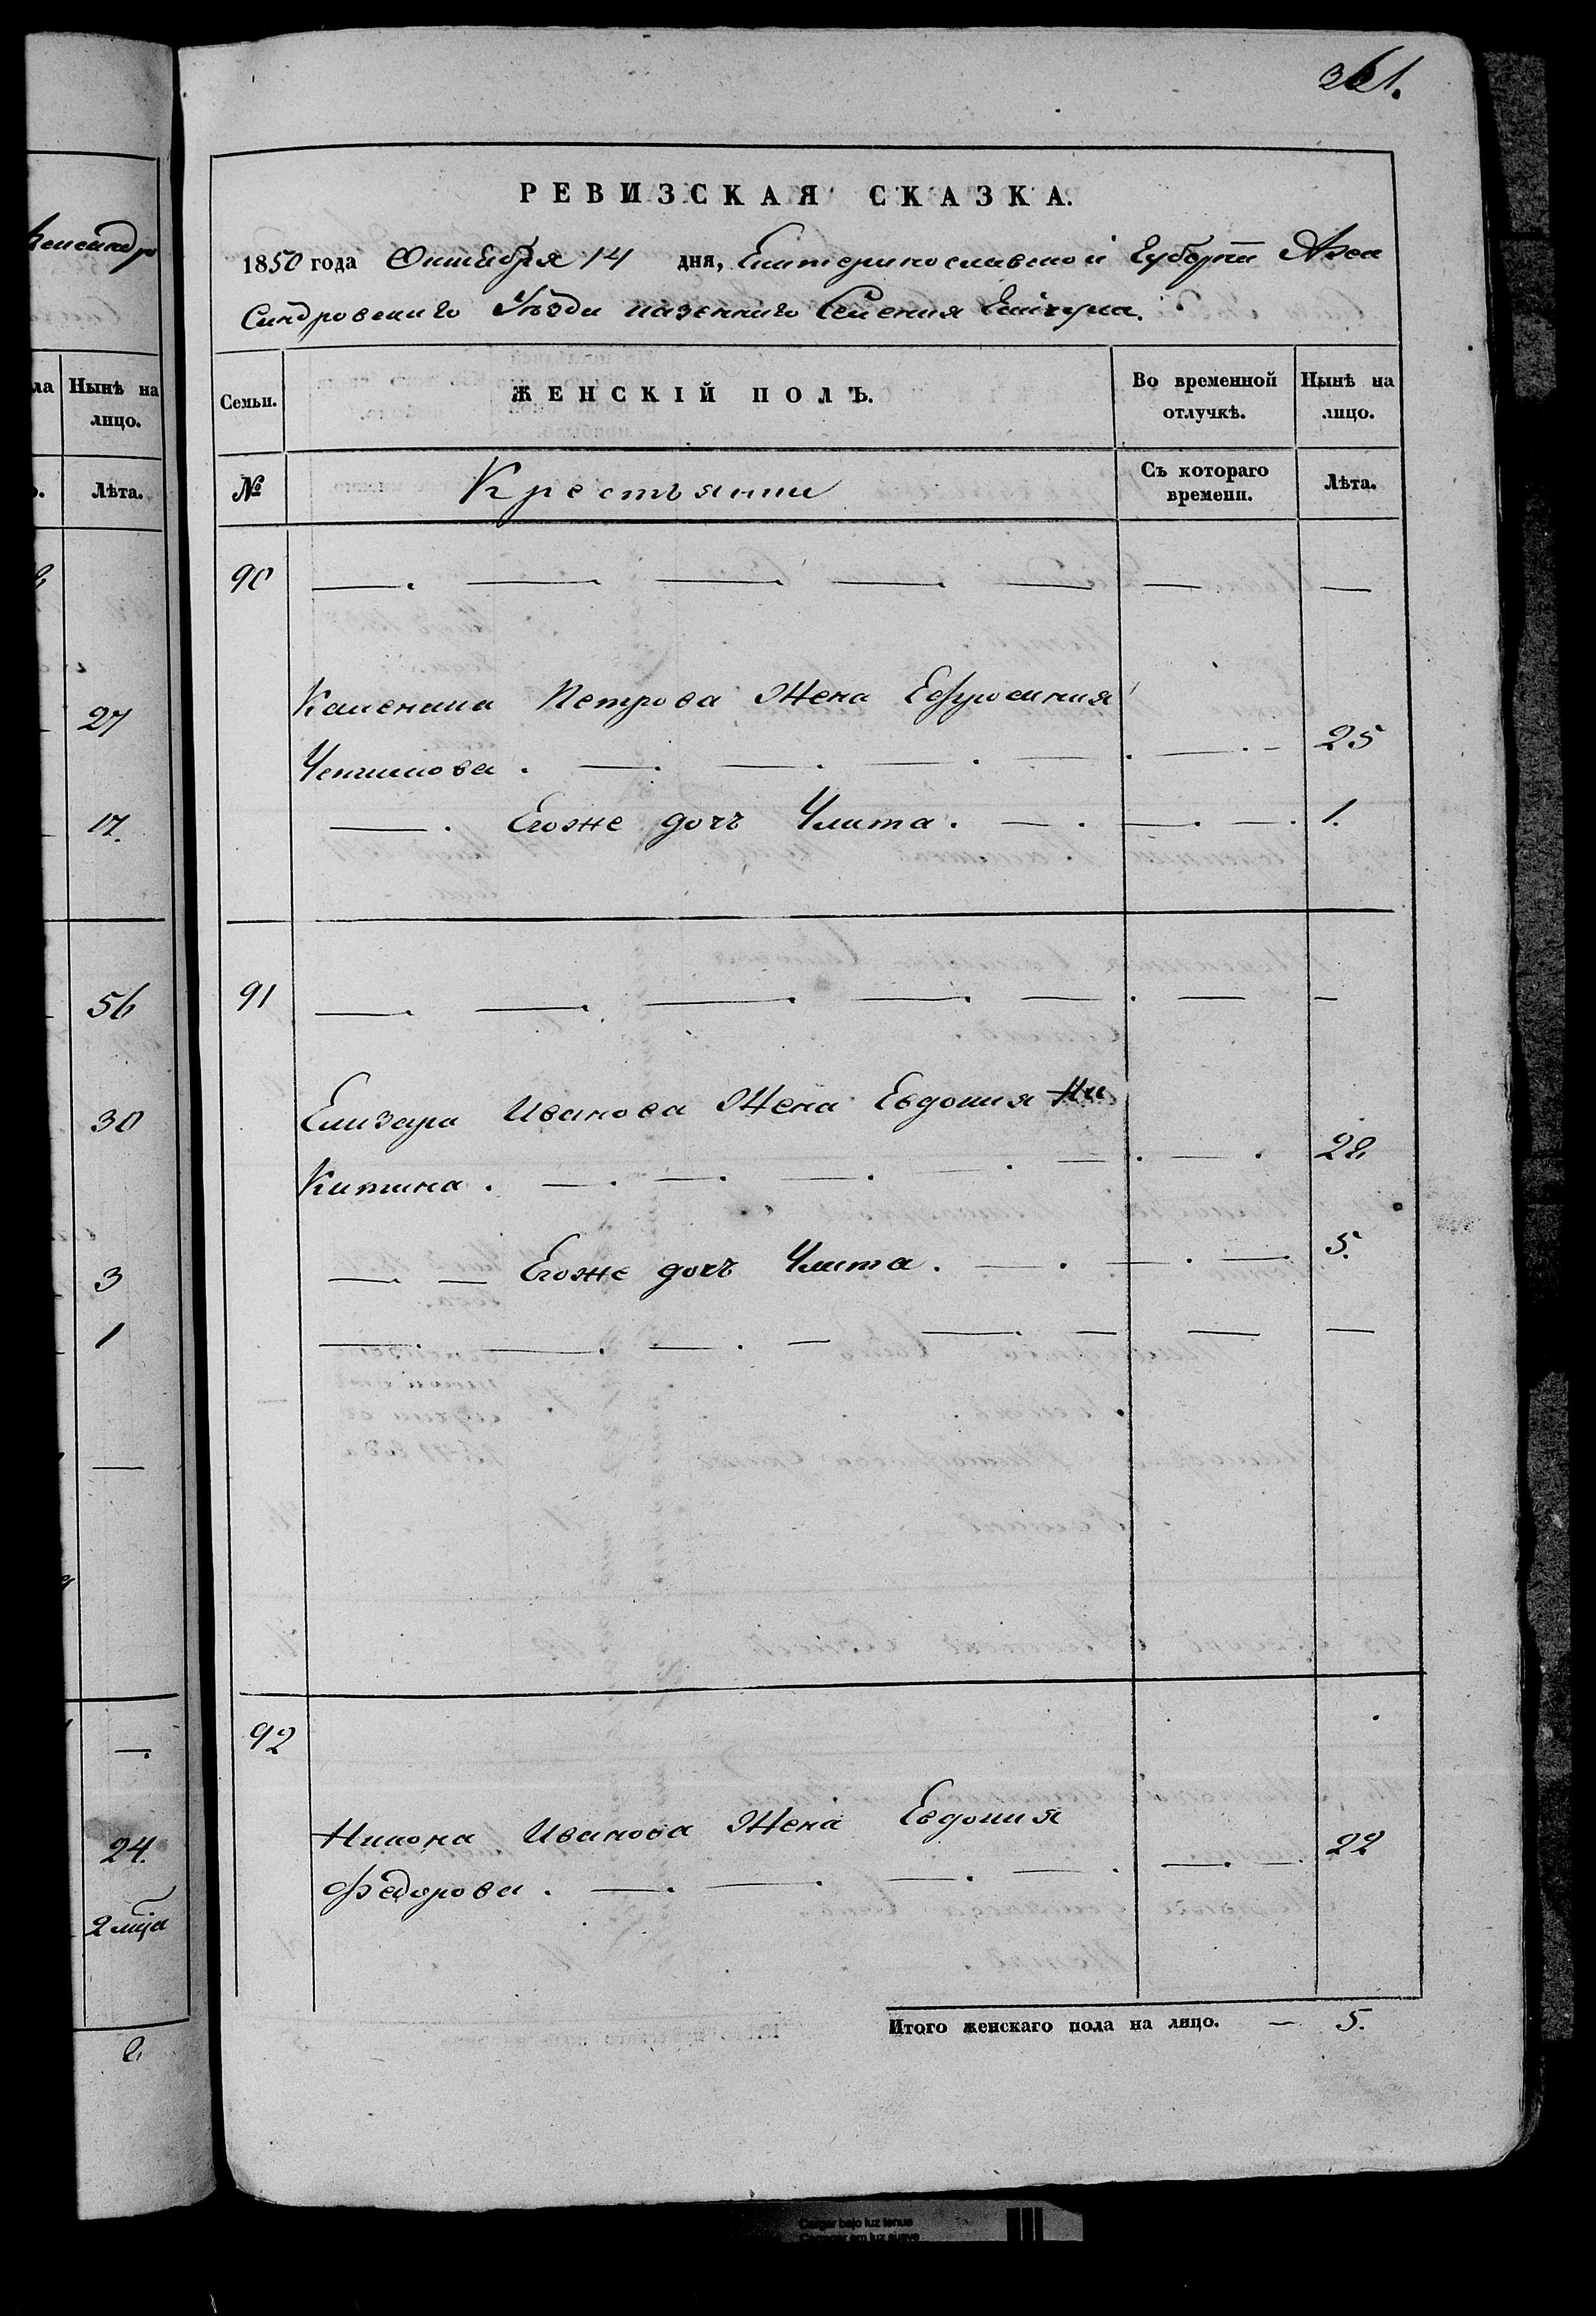 361.
РЕВИЗСКАЯ СКАЗКА.
1850 года Октября 14 дня, Екатеринославской Губерніи Алек
сандровскаго Уѣзда казеннаго Селенія
Семьи.
ЖЕНСКІЙ ПОЛЪ.
Во временной отлучкѣ.
Нынѣ на лицо.
№
Крестьянки
Съ котораго времени.
Лѣта.
90
Петрова Жена Ефросинія
25
Егоже дочь Улита. 1.
91
Елизара Иванова Жена Евдокия Ни
китина. 28
Егоже дочь Улита. 5.
92
Никона Иванова Жена Евдокия
Федорова. 22
Итого женскаго пола на лицо. — 5.
Нынѣ на лицо.
Лѣта.
27
17.
56
30
3
1
24.
2 м̃ца
8
Cargar bajo luz tenue